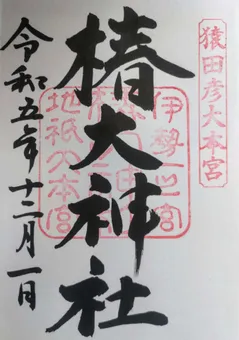 猿田彦大本宮
伊勢一之宮
椿大神社
地祇大本宮
令和五年十二月一日